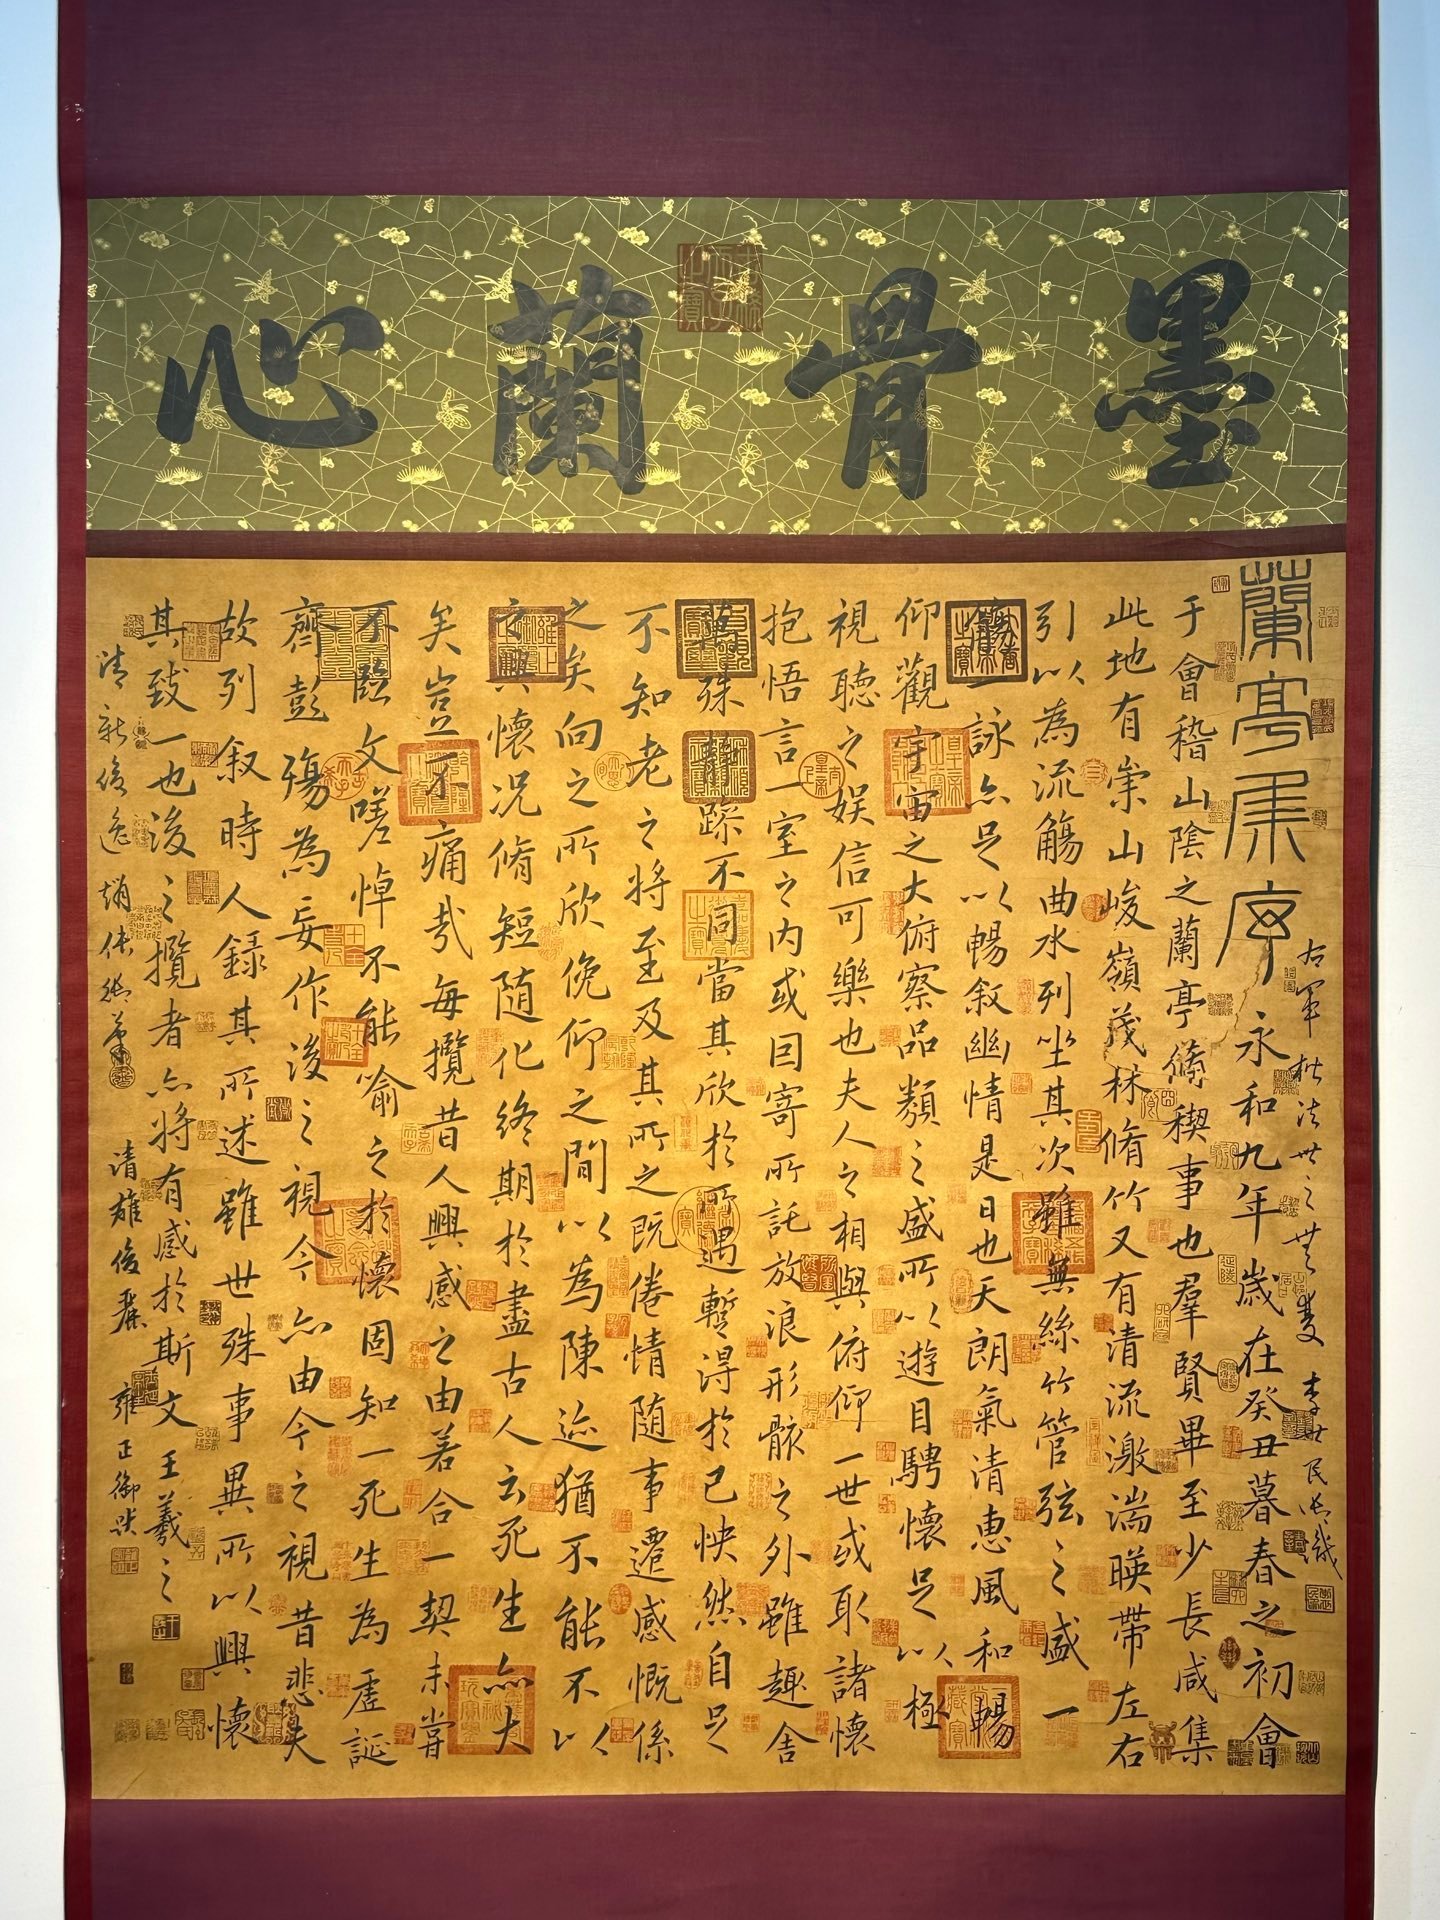 墨骨蘭心
蘭亭集序
右軍楷法世之無雙 李世民御識
永和九年歲在癸丑暮春之初會
于會稽山陰之蘭亭脩稧事也羣賢畢至少長咸集
此地有崇山峻嶺茂林脩竹又有清流激湍暎帶左右
引以為流觴曲水列坐其次雖無絲竹管弦之盛一
觴一詠亦足以暢叙幽情是日也天朗氣清惠風和暢
仰觀宇宙之大俯察品類之盛所以遊目騁懷足以極
視聽之娛信可樂也夫人之相與俯仰一世或取諸懷
抱悟言一室之內或因寄所託放浪形骸之外雖趣舍
萬殊靜躁不同當其欣於所遇暫得於己怏然自足
不知老之將至及其所之既倦情随事遷感慨係
之矣向之所欣俛仰之間以為陳迹猶不能不以
之興懷况脩短随化終期於盡古人云死生亦大
矣豈不痛哉每攬昔人興感之由若合一契未嘗
不臨文嗟悼不能喻之於懷固知一死生為虛誕
齊彭殤為妄作後之視今亦由今之視昔悲夫
故列叙時人錄其所述雖世殊事異所以興懷
其致一也後之攬者亦將有感於斯文王羲之
清新俊逸 趙佶御筆
清雄俊麗 雍正御跋